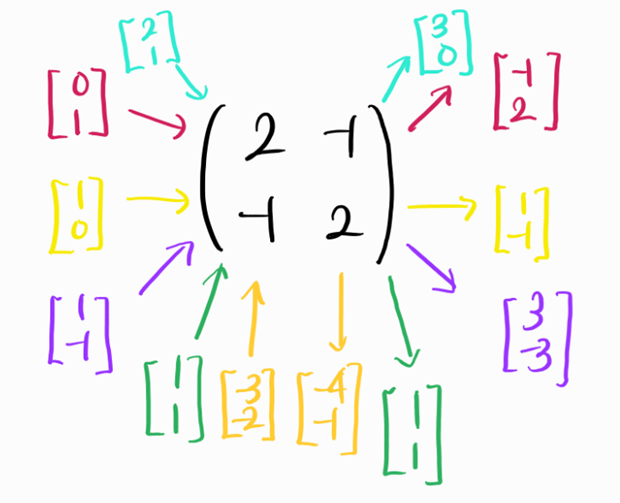 [2
1]
[3
0]
[0
1]
(2 -1
-1 2)
[-1
2]
[1
0]
[1
-1]
[1
-1]
[3
-3]
[1
1]
[-3
-2]
[-4
-1]
[1
1]